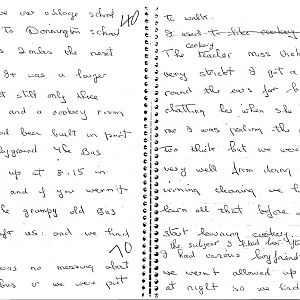 we was a large school
40
to Donnington school
s 2 miles the next
It was a larger
t still only three
and a cookery room
d been built in part
yground The Bus
up at 8.15 in
and if you weren't
e grumpy old Bus
ft us. and we had
was no messing about
bus or we were put
to walk.
I used to like cookery
cookery
The teacher miss
very strict I got a
round the ears for
chatting her when she
me I was peeling the
too thick but we were
very well from doing
running cleaning we h
learn all that before
start learning cookery.
the subject I liked
I had various boyfriend
we wern't allowed up
at night so we had